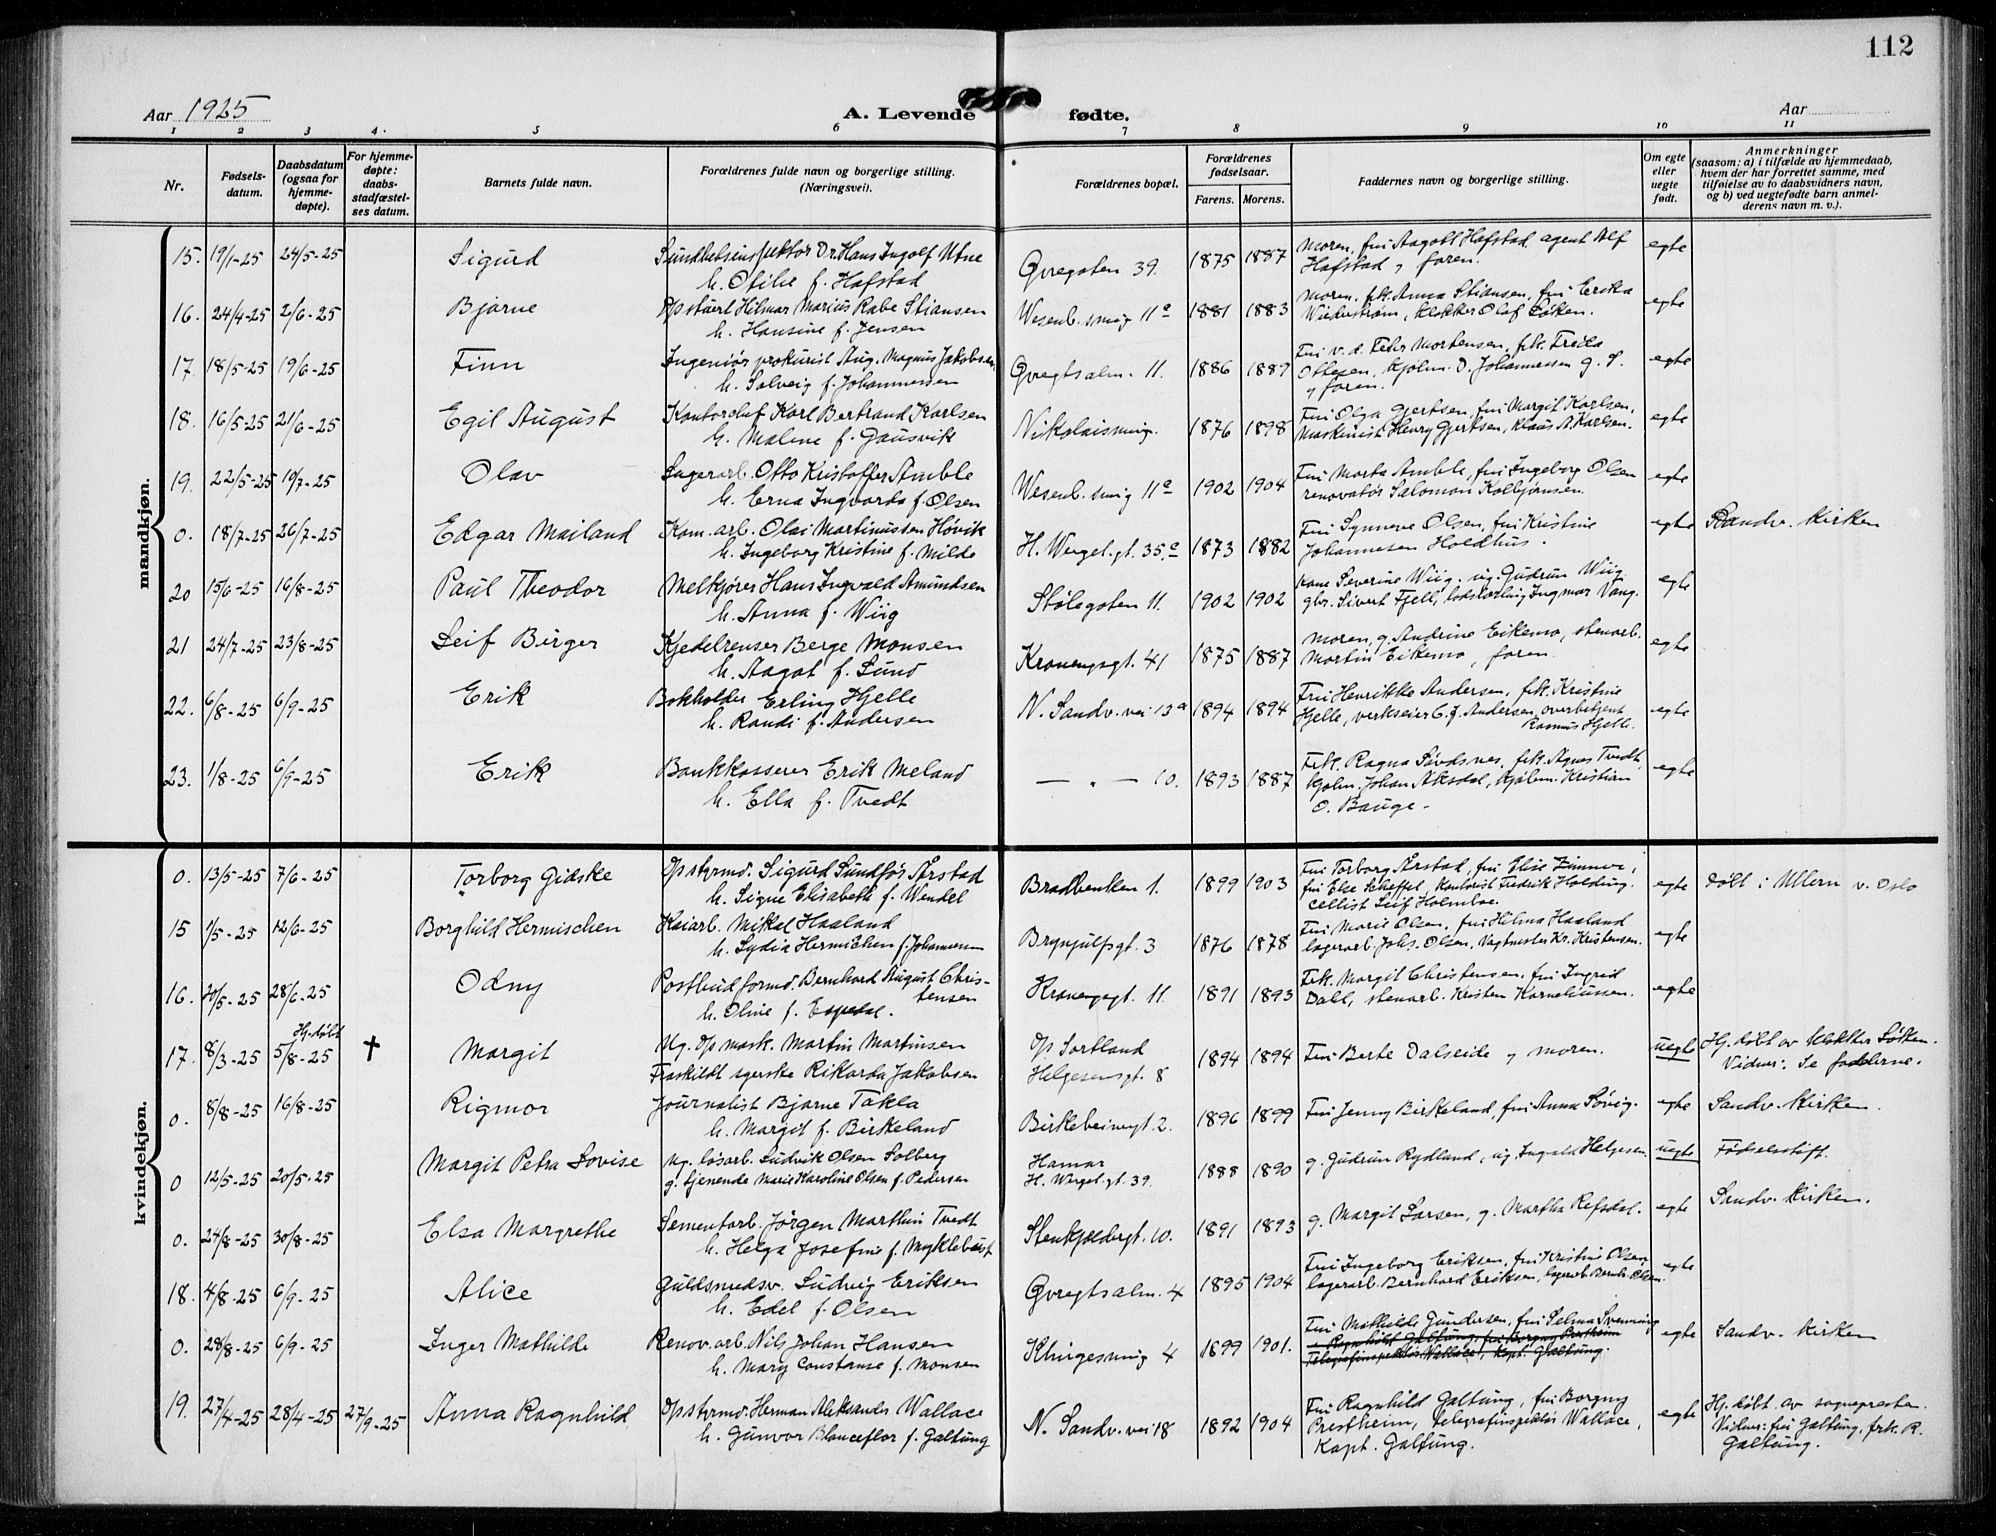 112
Aar 1925
A. Levende fødte.
Aar
1 2 3 4. 5 6 7 8 9 10 11
Nr.
Fødsels-datum.
Daabsdatum (ogsaa for hjemme-døpte).
For hjemme-døpte: daabs-stadfæstel-ses datum.
Barnets fulde navn.
Forældrenes fulde navn og borgerlige stilling. (Næringsvei).
Forældrenes bopæl.
Forældrenes fødselsaar.
Farens. Morens.
Faddernes navn og borgerlige stilling.
Om egte eller uegte født.
Anmerkninger
(saasom: a) i tilfælde av hjemmedaab,
hvem der har forrettet samme, med
tilføielse av to daabsvidners navn,
og b) ved uegtefødte barn anmel-
derens navn m. v.).
mandkjøn.
15. 19/1-25 24/5-25 Sigurd Sundhetsinspektør Dr. Hans Ingolf Utne Gvregaten 39. 1875 1887 Moren, fru Aagott Hafstad, agent Alf egte
h. Otilie f. Hafstad Hafstad, faren.
16. 24/4-25 2/6-25 Bjarne Opstuert Hilmar Marius Rabe Stiansen Wesenb. smug 11a 1881 1883 Moren, frk. Anna Stiansen, fru Erika egte
h. Hansine f. Jensen Widerstrøm, klokker Olaf Løken.
17. 18/5-25 19/6-25 Finn Ingeniør, prokurist Aug. Magnus Jakobsen Gvregtsalm. 11. 1886 1887 Fru v. d. Fehr Mortensen, frk. Frida egte
h. Solveig f. Johannessen Ottesen, kjølm. D. Johannessen g. S.
y faren.
18. 16/5-25 21/6-25 Egil August Kontorchef Karl Bertrand Karlsen Nikolaismug. 1876 1898 Fru Olga Gjertsen, fru Margit Karlsen, egte
h. Malene f. Gausvik Maskinist Henry Gjertsen, Klaus A Karlsen.
19. 22/5-25 19/7-25 Olav Lagerarb. Otto Kristoffer Amble Wesenb. smug 11a 1902 1904 Fru Marta Amble, fru Ingeborg Olsen egte
h. Erna Ingvarda f. Olsen renovatør Salomon Kolbjørnsen.
0. 18/7-25 26/7-25 Edgar Mailand Kom. arb. Olai Martinussen Høvik H. Wergel. gt. 35a 1873 1882 Fru Synneve Olsen, fru Kristine egte Sandv. kirken
h. Ingeborg Kristine f. Milde Johannesen Holdhus.
20 15/6-25 16/8-25 Paul Theodor Melkjører Hans Ingvald Amundsen Stølegaten 11. 1902 1902 kone Severine Wiig, ug. Gudrun Wiig egte
h. Anna f. Wiig gbr. Sivert Fjell, lodslærling Ingmar Vang.
21 24/7-25 23/8-25 Leif Birger Kjedelrenser Berge Monsen Kronengsgt. 41 1875 1887 Moren, g. Andrine Eikemo, stenarb. egte
h. Aagot f. Lund Martin Eikemo, faren.
22. 6/8-25 6/9-25 Erik Bokholder Erling Hjelle N. Sandv. vei 13a 1894 1894 Fru Henrikke Andersen, frk. Kristine egte
h. Randi f. Andersen Hjelle, verkseier C. J. Andersen, overbetjent
Rasmus Hjelle.
23. 1/8-25 6/9-25 Erik Bankkasserer Erik Meland — „ — 10. 1893 1887 Frk. Ragna Søvdsnes, frk. Agnes Tvedt, egte
h. Ella f. Tvedt kjølm. Johan Aksdal, kjølm. Kristian
O. Bauge -
kvindekjøn.
0. 13/5-25 7/6-25 Torborg Gidske Opstyrmd. Sigurd Sundfør Årstad Bradbenken 1. 1899 1903 Fru Torborg Årstad, fru Elise Zimmer, egte døbt i Ullern v. Oslo
h. Signe Elisabeth f. Wendel fru Else Scheffel, kontorist Fredrik Holding.
cellist Leif Holmboe.
15 1/5-25 12/6-25 Borghild Hermischen Kaiarb. Mikal Haaland Brynjulfsgt. 3 1876 1878 Fru Marie Olsen, fru Hilma Haaland egte
h. Lydia Hermichen f. Johannesen lagerarb. Johs. Olsen, Vagtmester Kr. Kristensen.
16. 20/5-25 28/6-25 Odny Postbudformd. Bernhard August Chris-tensen Kronengsgt. 11. 1891 1893 Frk. Margit Christensen, fru Ingrid egte
h. Oline f. Espedal. Dall, stenarb. Kristen Korneliussen.
17. 8/3-25 Hj. døbt 5/8-25 † Margit Ug. Op mask. Martin Martinsen Op Sortland 1894 1894 Fru Berte Dalseide y moren. uegte Hj. døbt av klokker Løken.
Fraskildt syerske Rikarda Jakobsen Helgesensgt. 8 Vidner: Se fadderne.
0. 8/8-25 16/8-25 Rigmor Journalist Bjarne Takla Birkebeinergt. 2. 1896 1899 Fru Jenny Birkeland, fru Anna Søvig. egte Sandv. kirken.
h. Margit f. Birkeland
0 12/5-25 20/5-25 Margit Petra Lovise Ug. løsarb. Ludvik Olsen Solberg Hamar 1888 1890 g. Gudrun Rydland, ug Ingvald Helgesen uegte Fødselsstift.
g. tjenende Marie Karoline Olsen f. Pedersen H. Wergel. gt. 39.
0. 24/8-25 30/8-25 Elsa Margrethe Sementarb. Jørgen Marthin Tvedt Stenkjeldergt. 10. 1891 1893 g. Margit Larsen, g. Martha Refsdal. egte Sandv. kirken.
h. Helga Josefine f. Myklebust
18. 4/8-25 6/9-25 Alice Guldsmedsv. Ludvig Eriksen Gvregtsalm. 4 1895 1904 Fru Ingeborg Eriksen, fru Kristine Olsen egte
h. Edel f. Olsen lagerarb. Bernhard Eriksen, lagerarb. Bernh. Olsen.
0. 28/8-25 6/9-25 Inger Mathilde Renov. arb. Nils Johan Hansen Klingesmug 4 1899 1901. Fru Mathilde Gundersen, fru Selma Svenning egte Sandv. kirken
h. Mary Constanse f. Monsen Ragnhild Galtung, fru Borgny Prestheim
Telegrafinspektør Wallace, Kapt. Galtung.
19. 27/4-25 28/4-25 27/9-25 Anna Ragnhild Opstyrmd. Herman Aleksander Wallace N. Sandv. vei 18 1892 1904 Fru Ragnhild Galtung, fru Borgny egte Hj. døbt av sognepresten.
h. Gunvor Blanceflor f. Galtung Prestheim, telegrafinspektør Wallace, Vidner: fru Galtung, frk. R.
Kapt. Galtung. Galtung.